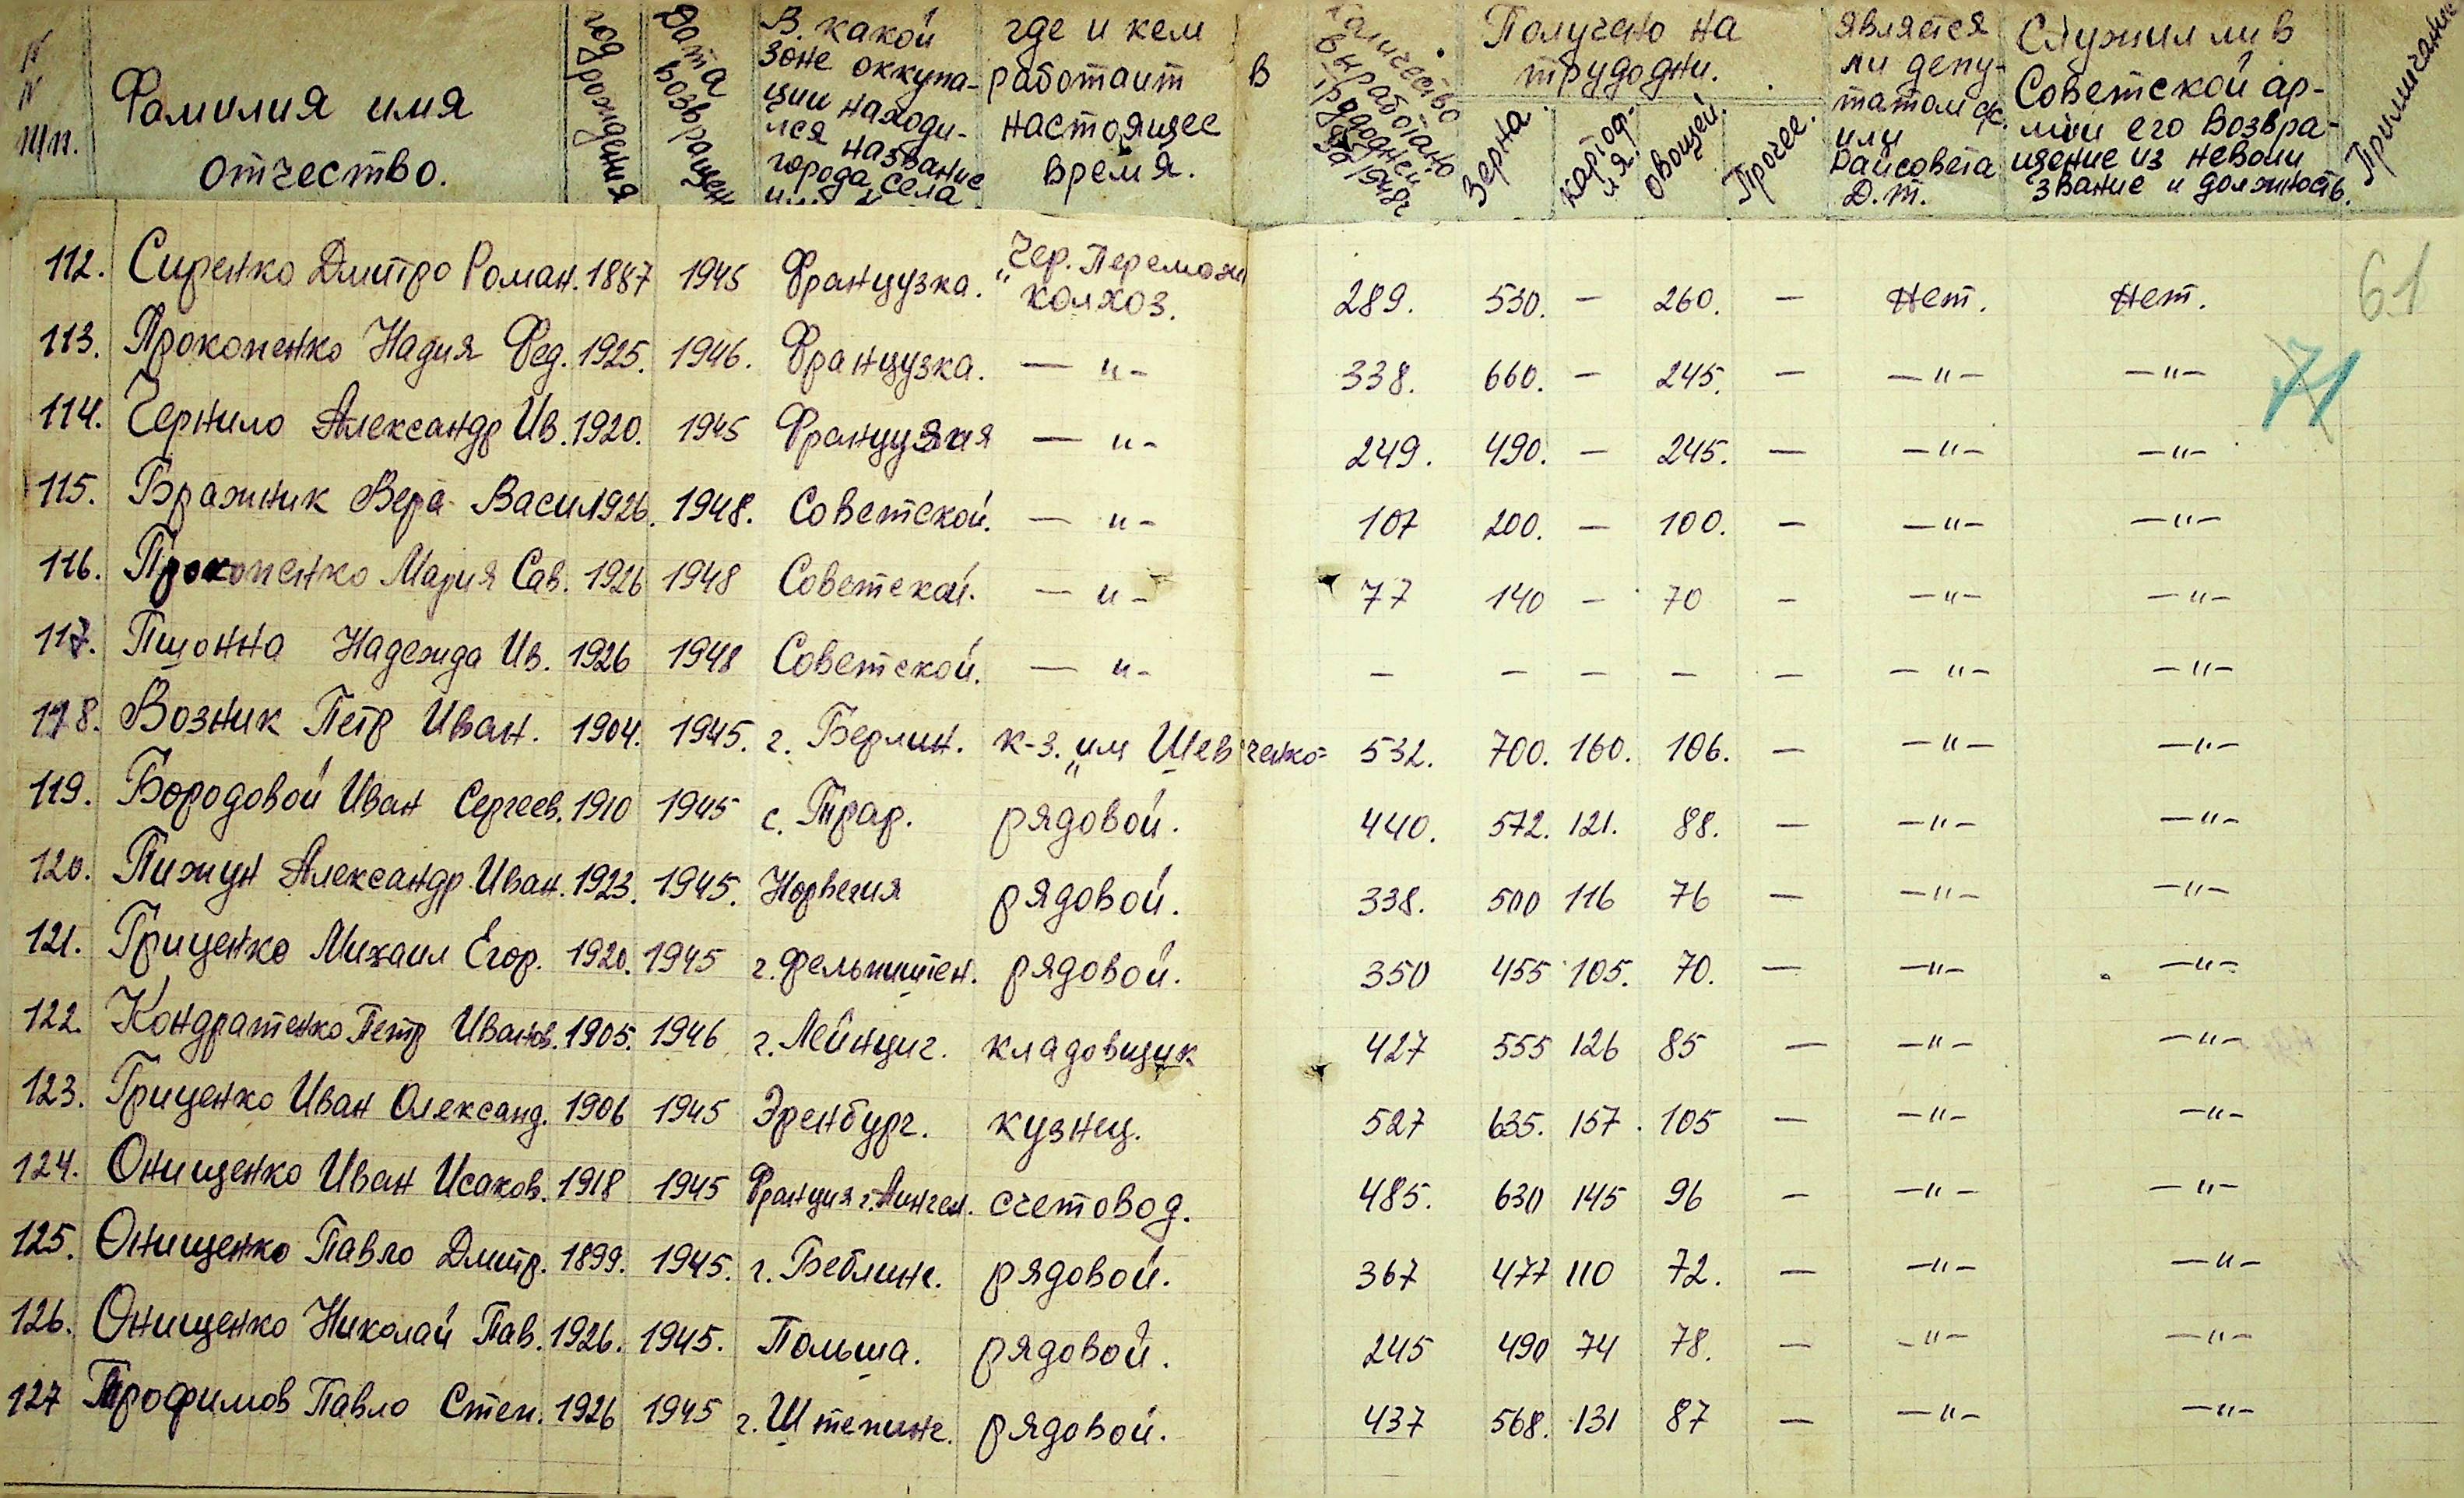 N N п/п. Фамилия имя отчество. год рождения Дата возвращен В какой зоне оккупации находился название города, села где и кем работает в настоящее время. Количество выработано трудодней за 1948г Получено на трудодни. Зерна картофля. овощей. Прочее. является ли депутатом с/с. или Райсовета Д.т. Служил ли в Советской армии его возвращение из неволи звание и должность. Примичание
112. Сиренко Дмитро Роман. 1887 1945 Французка. "Чер. Перемож колхоз. 289. 530. — 260. — Нет. Нет. 61
113. Прокопенко Надия Фед. 1925. 1946. Французка. — " - 338. 660. — 245. — — " — — " — 71
114. Чернило Александр Ив. 1920. 1945 Французкия — " - 249. 490. — 245. — — " — — " —
115. Бражник Вера Васил 1926. 1948. Советской. — " - 107 200. — 100. — — " — — " —
116. Прокопенко Мария Сав. 1926 1948 Советской. — " - 77 140 — 70 — — " — — " —
117. Пшонна Надежда Ив. 1926 1948 Советской. — " - — — — — — — " — — " —
118. Возник Петр Иван. 1904. 1945. г. Берлин. к-з. "им Шевченко= 532. 700. 160. 106. — — " — — " —
119. Бородовой Иван Сергеев. 1910 1945 с. Трар. рядовой. 440. 572. 121. 88. — — " — — " —
120. Пижун Александр Иван. 1923. 1945. Норвегия рядовой. 338. 500 116 76 — — " — — " —
121. Гриценко Михаил Егор. 1920. 1945 г. Фельпштен. рядовой. 350 455 105. 70. — — " — — " —
122. Кондратенко Петр Иванов. 1905. 1946 г. Лейпциг. кладовщик 427 555 126 85 — — " — — " —
123. Гриценко Иван Олександ. 1906 1945 Эренбург. кузнец. 527 635. 157. 105 — — " — — " —
124. Онищенко Иван Исаков. 1918 1945 Франция г. Ангел. счетовод. 485. 630 145 96 — — " — — " —
125. Онищенко Павло Дмитр. 1899. 1945. г. Беблинг. рядовой. 367 477 110 72. — — " — — " —
126. Онищенко Николай Пав. 1926. 1945. Польша. рядовой. 245 490 74 78. — — " — — " —
127 Трофимов Павло Степ. 1926 1945 г. Штепинг. рядовой. 437 568. 131 87 — — " — — " —